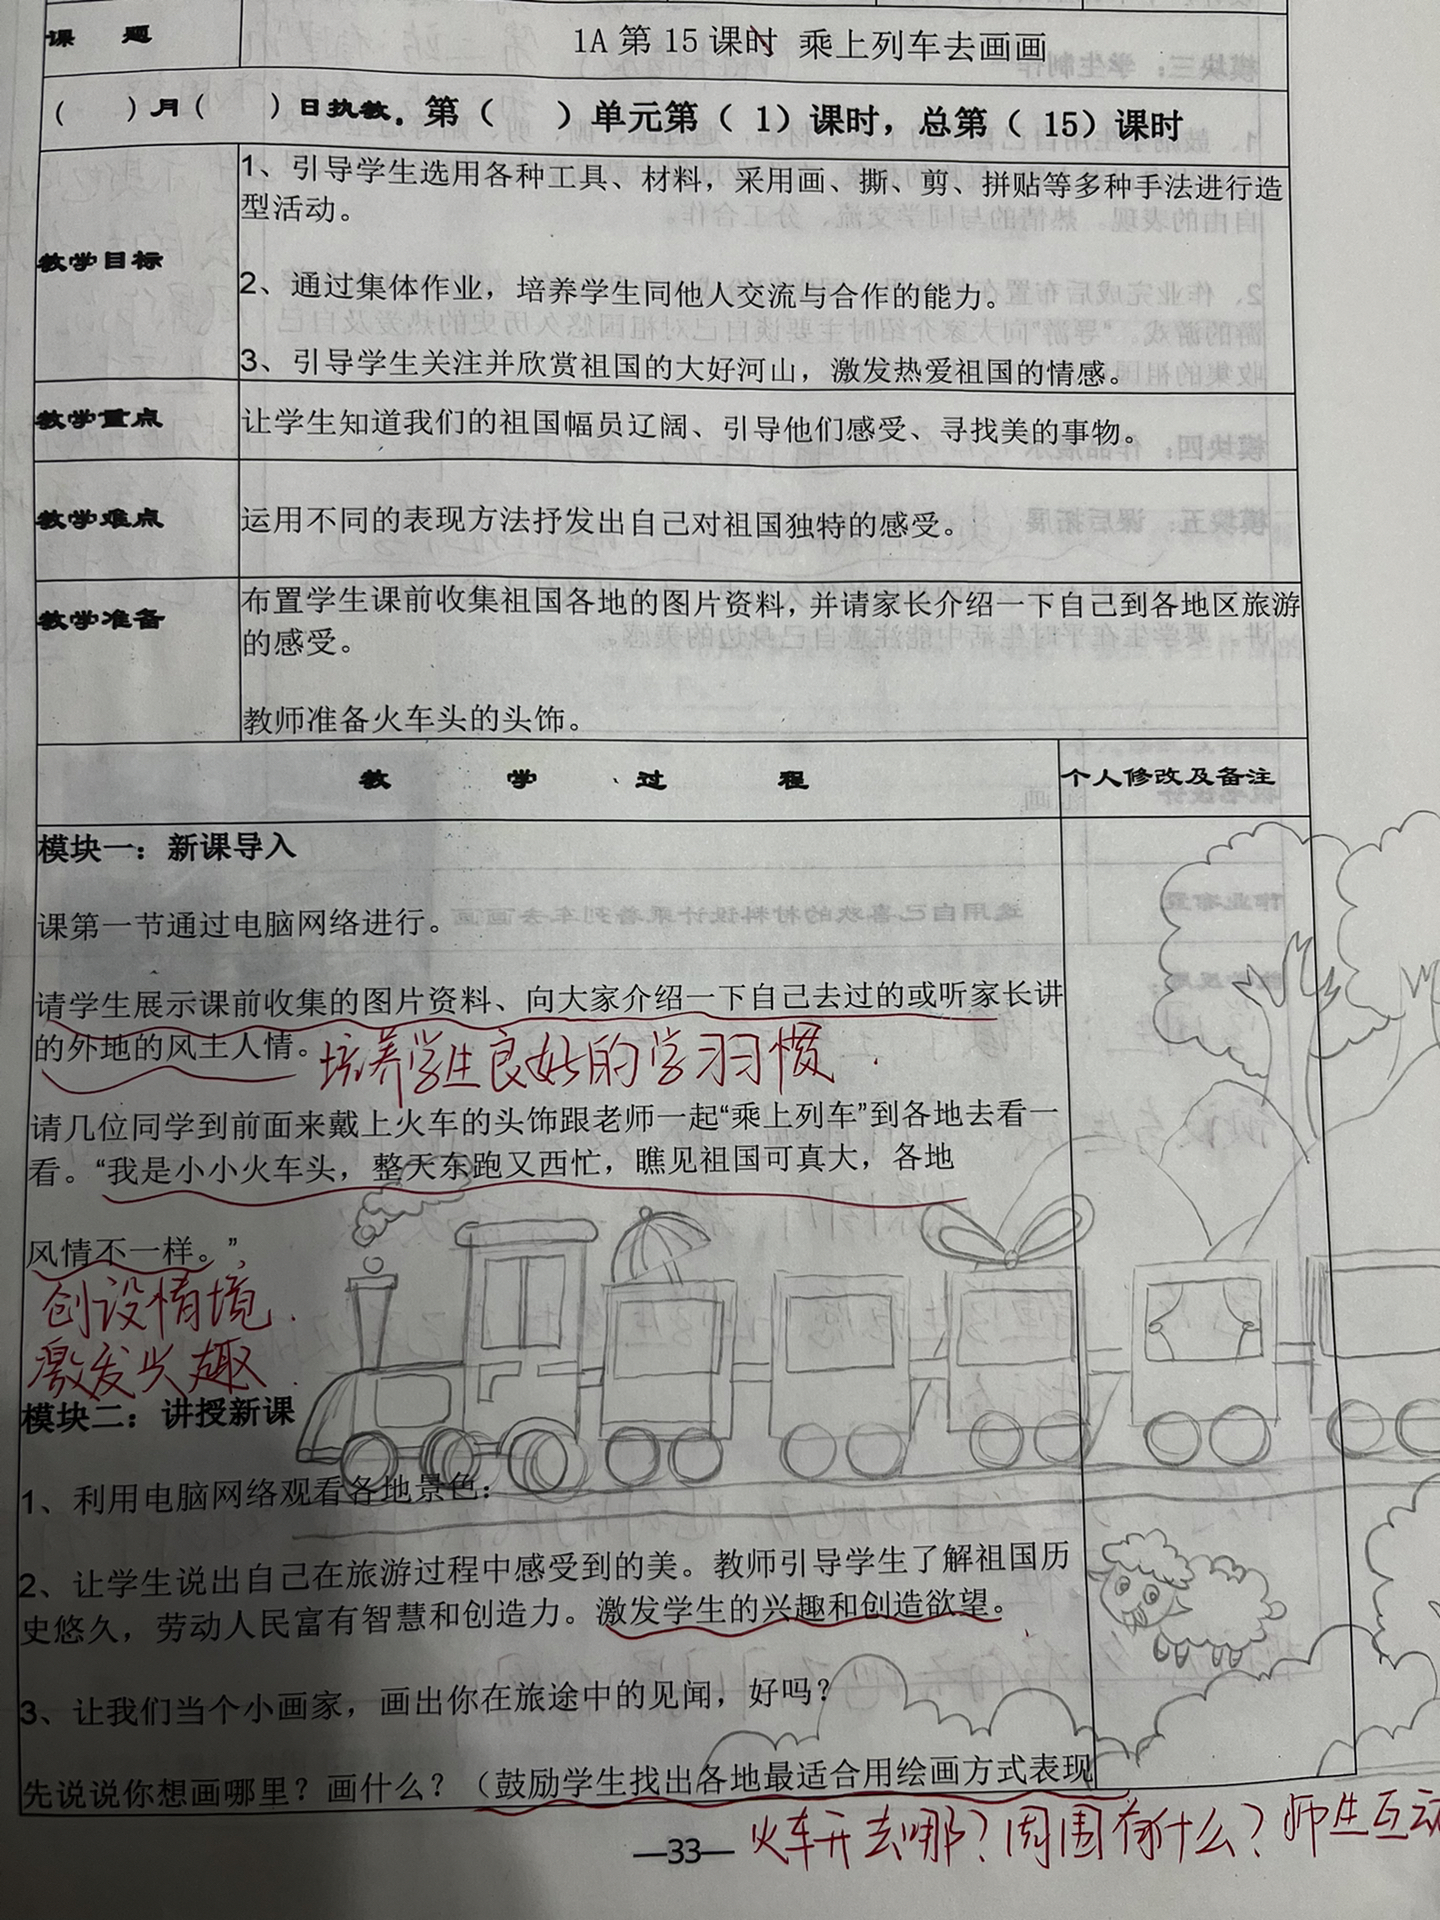 课 题
1A 第 15 课时 乘上列车去画画
（ ）月（ ）日执教. 第（ ）单元第（ 1）课时，总第（ 15）课时
教学目标
1、引导学生选用各种工具、材料，采用画、撕、剪、拼贴等多种手法进行造
型活动。
2、通过集体作业，培养学生同他人交流与合作的能力。
3、引导学生关注并欣赏祖国的大好河山，激发热爱祖国的情感。
教学重点
让学生知道我们的祖国幅员辽阔、引导他们感受、寻找美的事物。
教学难点
运用不同的表现方法抒发出自己对祖国独特的感受。
教学准备
布置学生课前收集祖国各地的图片资料，并请家长介绍一下自己到各地区旅游
的感受。
教师准备火车头的头饰。
教 学 过 程
个人修改及备注
模块一：新课导入
课第一节通过电脑网络进行。
请学生展示课前收集的图片资料、向大家介绍一下自己去过的或听家长讲
的外地的风土人情。
培养学生良好的学习习惯.
请几位同学到前面来戴上火车的头饰跟老师一起“乘上列车”到各地去看一
看。“我是小小火车头，整天东跑又西忙，瞧见祖国可真大，各地
风情不一样。”
创设情境.
激发兴趣.
模块二：讲授新课
1、利用电脑网络观看各地景色：
2、让学生说出自己在旅游过程中感受到的美。教师引导学生了解祖国历
史悠久，劳动人民富有智慧和创造力。激发学生的兴趣和创造欲望。
3、让我们当个小画家，画出你在旅途中的见闻，好吗？
先说说你想画哪里？画什么？（鼓励学生找出各地最适合用绘画方式表现
火车开去哪？周围有什么？师生互动
—33—